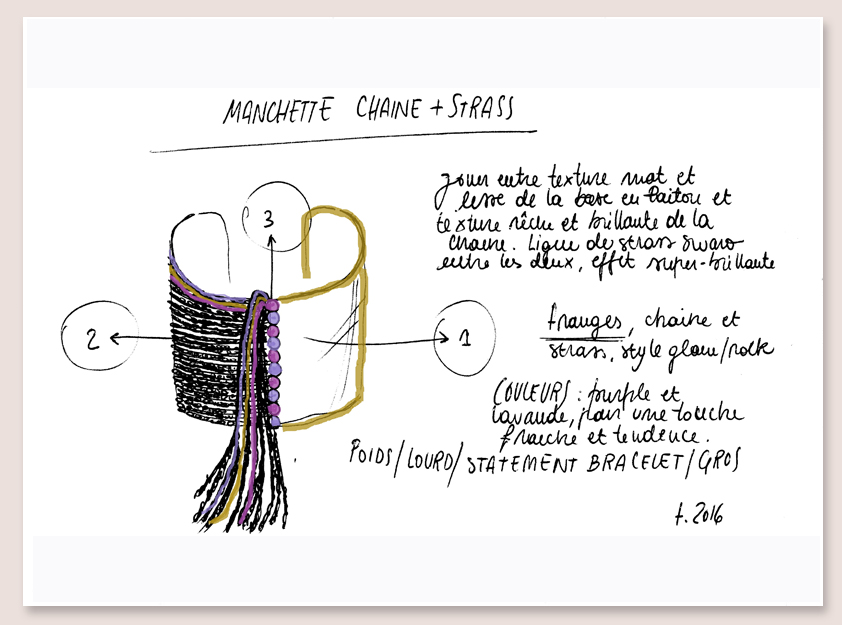 MANCHETTE CHAINE + STRASS
3
jouer entre texture mat et
lisse de la base en laiton et
texture rêche et brillante de la
chaine. Ligne de strass swaro
entre les deux, effet super-brillante
2
1
franges, chaine et
strass, style glam/rock
COULEURS : purple et
lavande, pour une touche
fraiche et tendence.
POIDS/LOURD/STATEMENT BRACELET/GROS
t. 2016